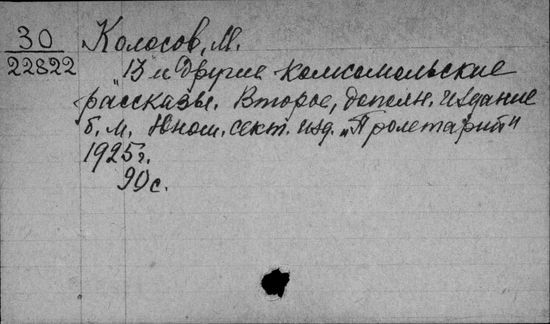 30
22822
Колосов, М.
„13 и другие комсомольские
рассказы. Второе, дополн. издание
б. м. Юнош. сект. изд. „Пролетарий"
1925г.
90с.